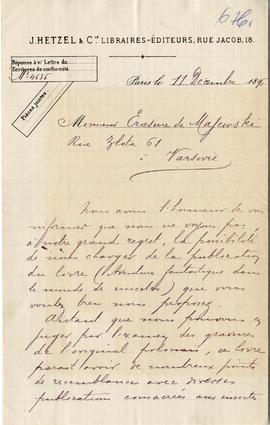 J. HETZEL & Cie, LIBRAIRES-ÉDITEURS, RUE JACOB, 18.
Réponse à Vre Lettre du
Écritures de conformité
No 4636
Pièces jointes
Paris le 11 Décembre 189
Monsieur Erasme de Majewski
Rue Zlota 61
à Varsovie
Nous avons l'honneur de vous
informer que nous ne voyons pas,
à notre grand regret, la possibilité
de nous charger de la publication
du livre (Aventure fantastique dans
le monde des insectes) que vous
voulez bien nous proposer.
Autant que nous pouvons en
juger par l'examen des gravures
de l'original polonais, ce livre
paraît avoir de nombreux points
de ressemblance avec diverses
publications consacrées aux insectes